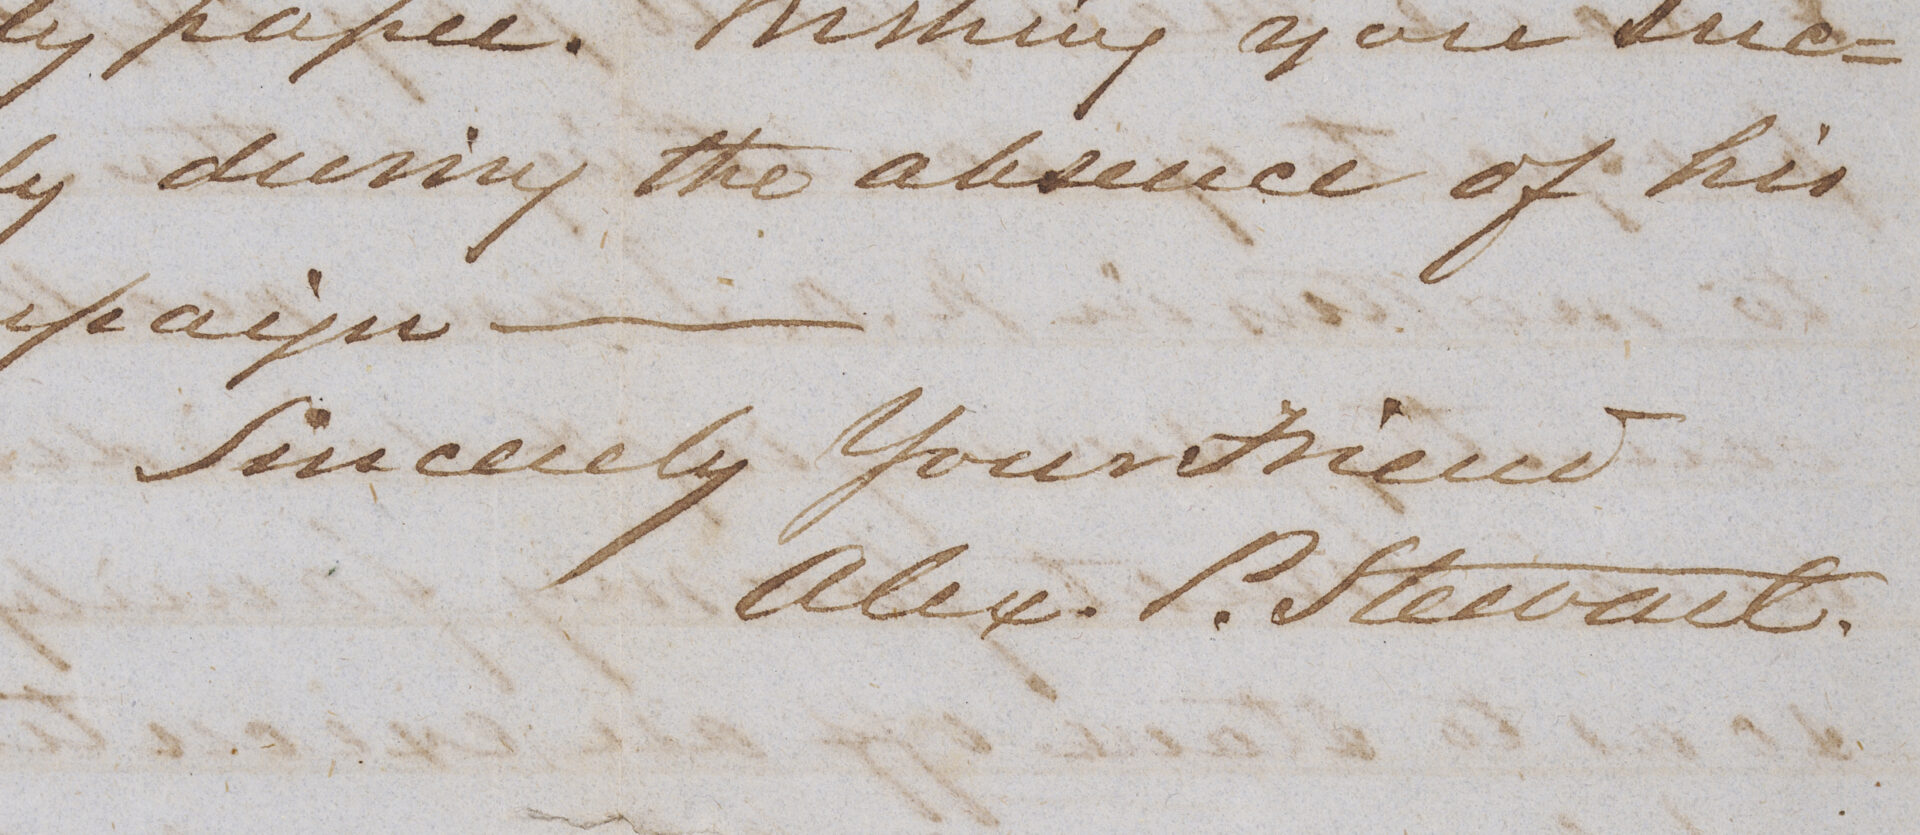 ly paper. Wishing you suc=
ly during the absence of his
paign —
Sincerely Your Friend
Alex. P. Stewart.